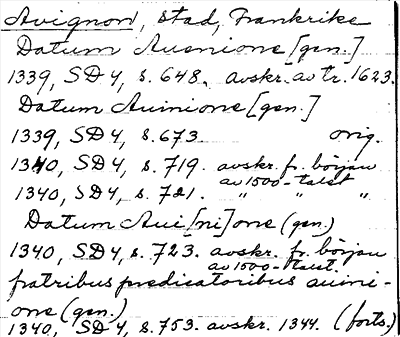 Avignon, stad, Frankrike
Datum Auenione [gen.]
1339, SD 4, s. 648. avskr. av tr. 1623.
Datum Auinione [gen.]
1339, SD 4, s. 673 orig.
1340, SD 4, s. 719. avskr. fr. början
av 1500-talet
1340, SD 4, s. 721. " " "
Datum Aui[ni]one (gen.)
1340, SD 4, s. 723. avskr. fr. början
av 1500-talet.
fratribus predicatoribus auini-
one (gen.)
1340, SD 4, s. 753. avskr. 1344. (forts.)